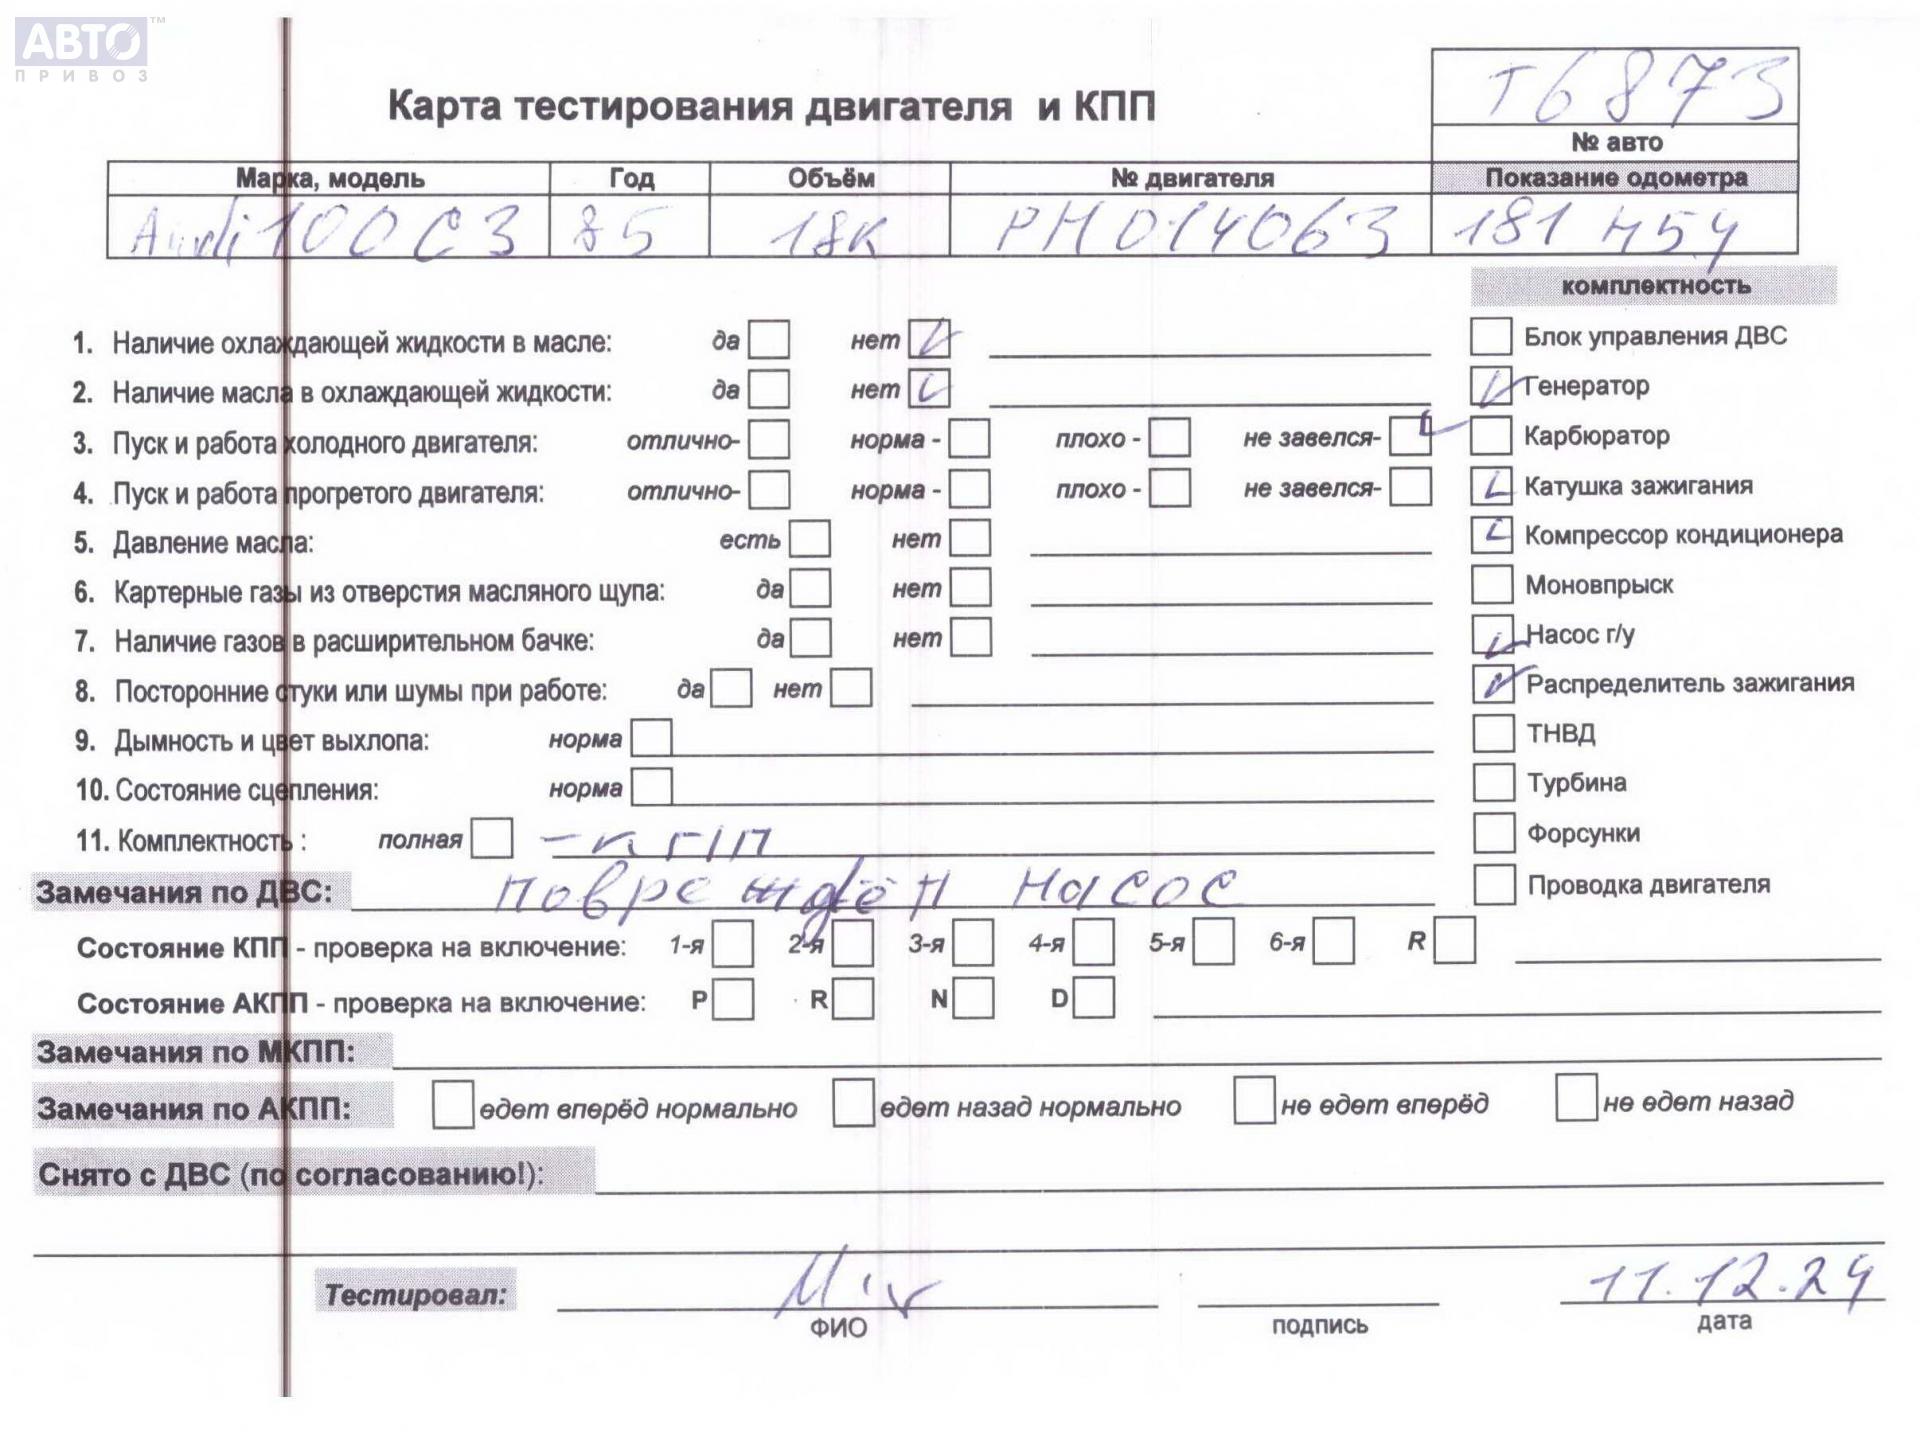 АВТО™
ПРИВОЗ
Т6873
Карта тестирования двигателя и КПП
№ авто
Марка, модель Год Объём № двигателя Показание одометра
Audi 100 C3 85 18к РН 014063 181 454
комплектность
1. Наличие охлаждающей жидкости в масле: да нет Блок управления ДВС
2. Наличие масла в охлаждающей жидкости: да нет Генератор
3. Пуск и работа холодного двигателя: отлично- норма - плохо - не завелся- Карбюратор
4. Пуск и работа прогретого двигателя: отлично- норма - плохо - не завелся- Катушка зажигания
5. Давление масла: есть нет Компрессор кондиционера
6. Картерные газы из отверстия масляного щупа: да нет Моновпрыск
7. Наличие газов в расширительном бачке: да нет Насос г/у
8. Посторонние стуки или шумы при работе: да нет Распределитель зажигания
9. Дымность и цвет выхлопа: норма ТНВД
10. Состояние сцепления: норма Турбина
11. Комплектность : полная Форсунки
Замечания по ДВС: повреждён насос Проводка двигателя
Состояние КПП - проверка на включение: 1-я 2-я 3-я 4-я 5-я 6-я R
Состояние АКПП - проверка на включение: P R N D
Замечания по МКПП:
Замечания по АКПП: едет вперёд нормально едет назад нормально не едет вперёд не едет назад
Снято с ДВС (по согласованию!):
Тестировал: 11.12.24
ФИО подпись дата